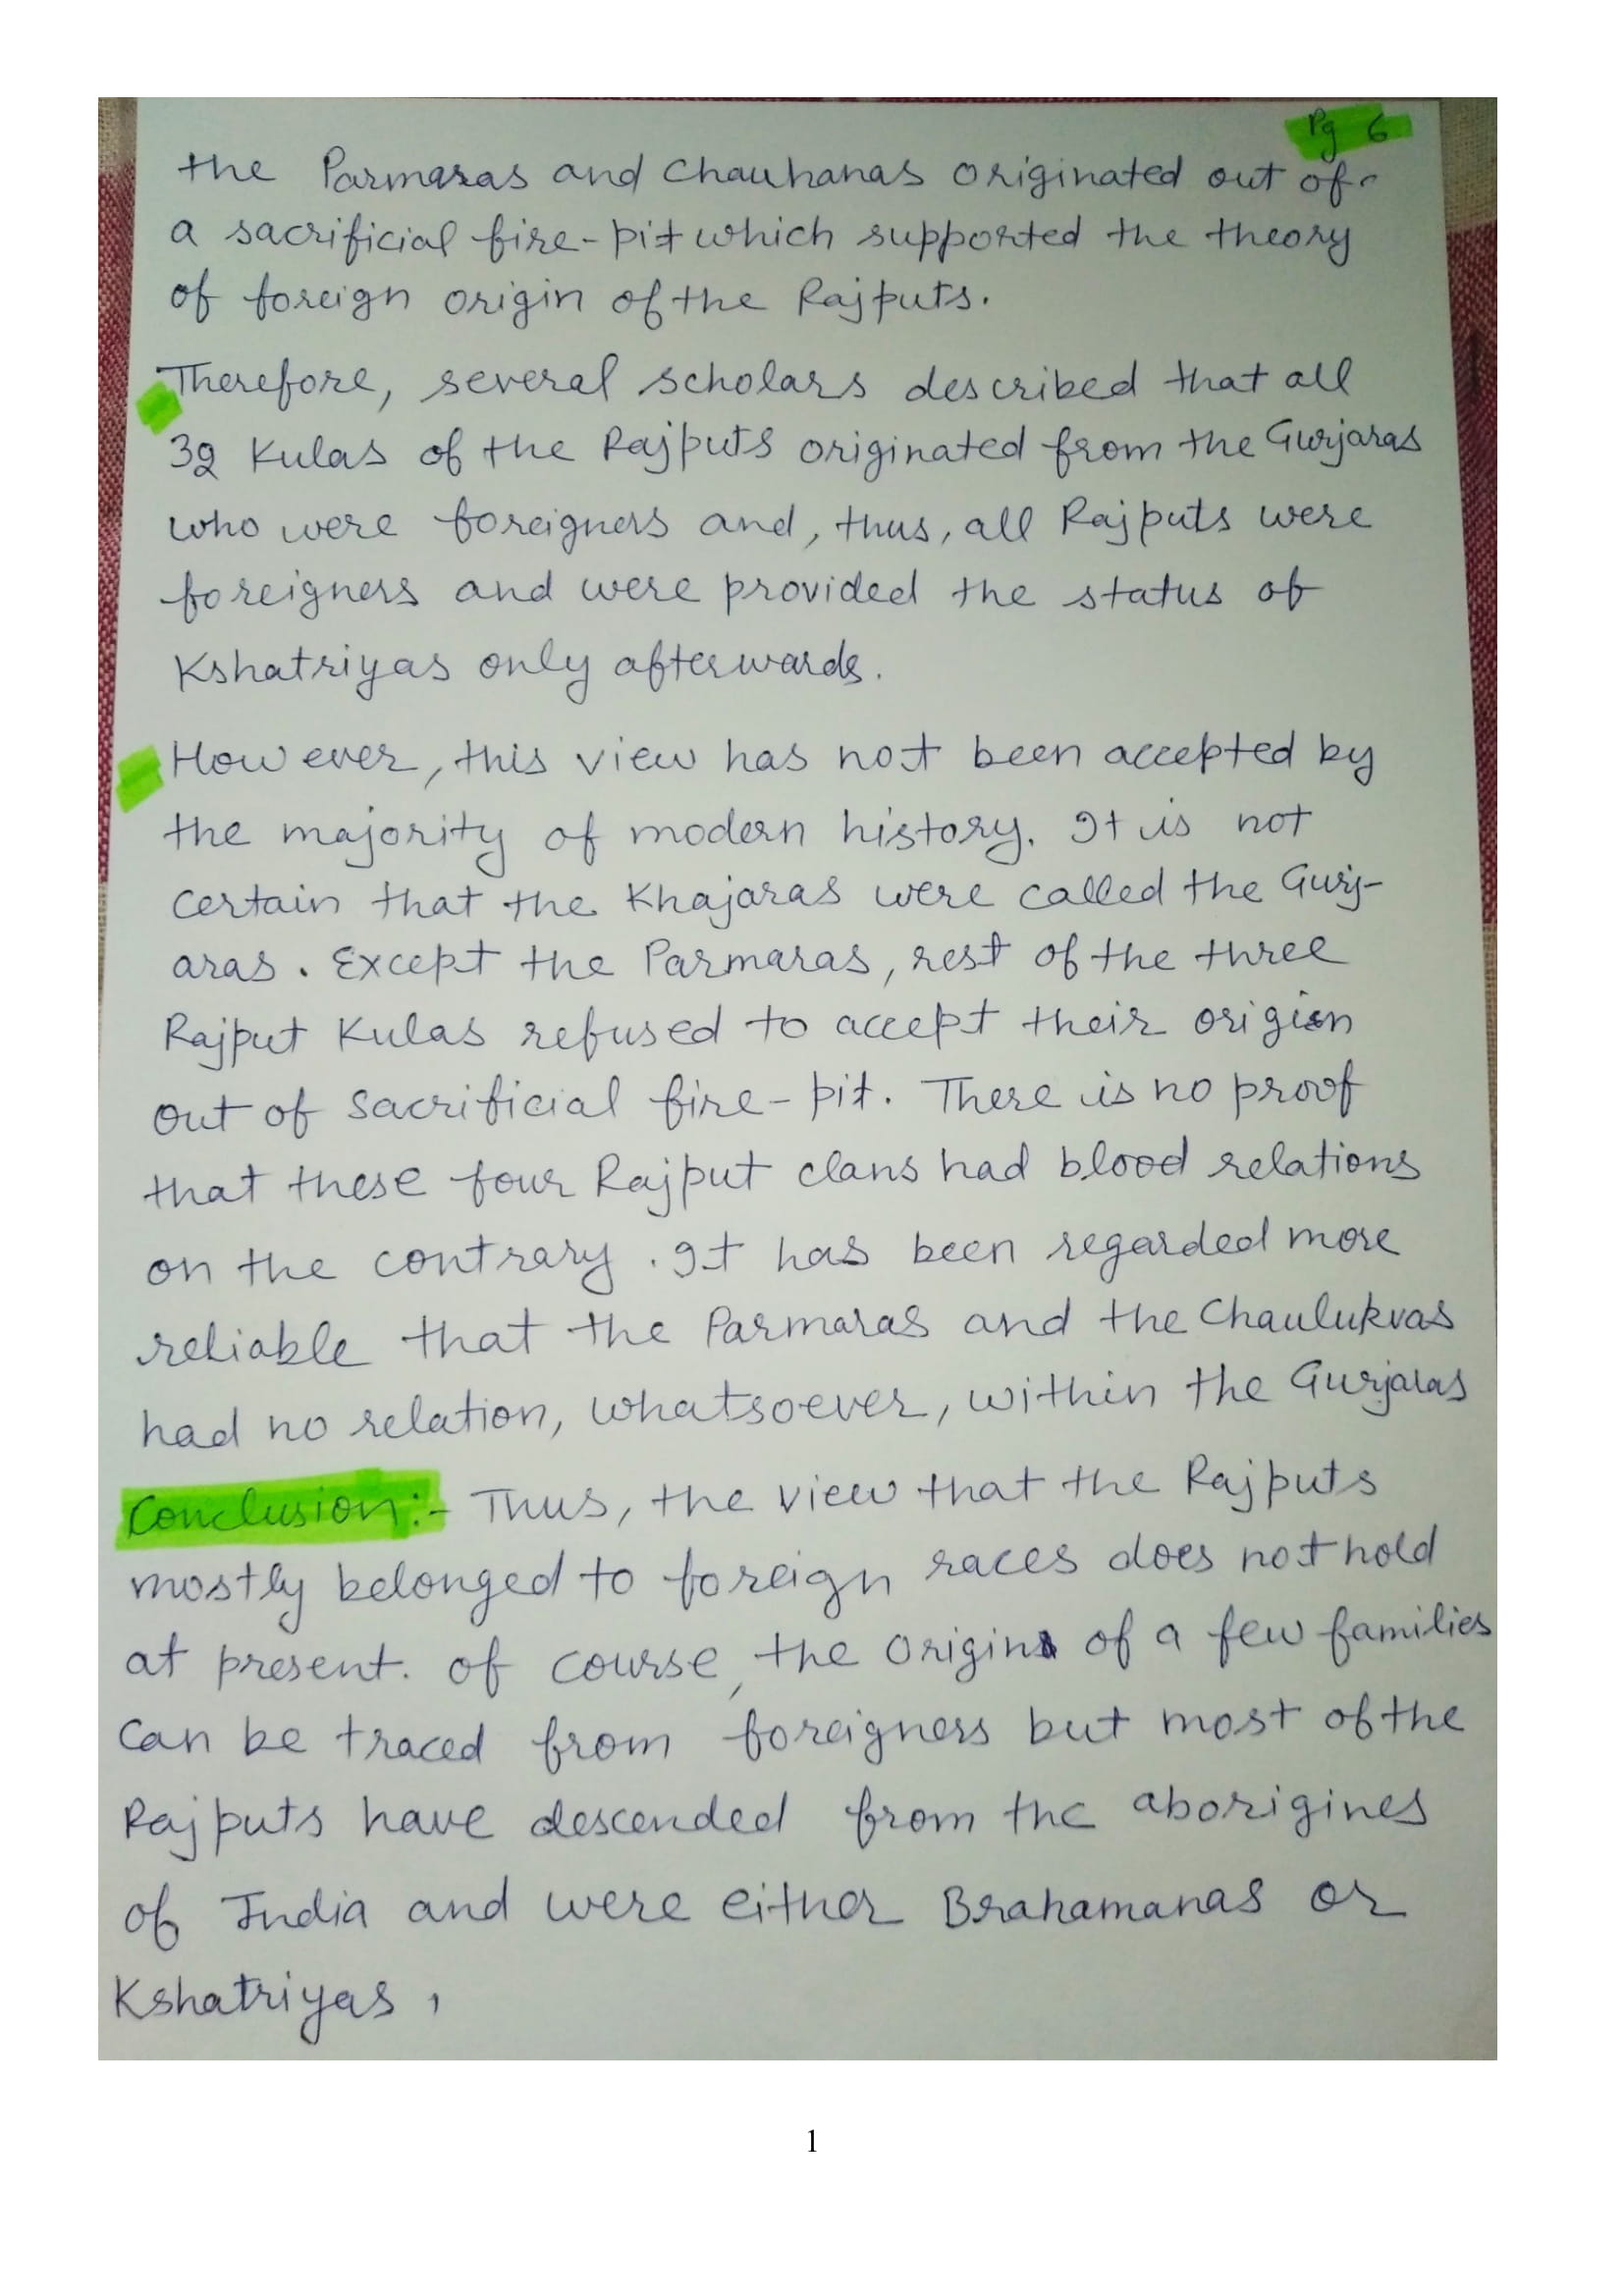 Pg 6
the Parmaras and Chauhanas originated out of
a sacrificial fire-pit which supported the theory
of foreign origin of the Rajputs.
Therefore, several scholars described that all
32 Kulas of the Rajputs originated from the Gurjaras
who were foreigners and, thus, all Rajputs were
foreigners and were provided the status of
Kshatriyas only afterwards.
However, this view has not been accepted by
the majority of modern history. It is not
certain that the Khajaras were called the Gurj-
aras. Except the Parmaras, rest of the three
Rajput Kulas refused to accept their origin
out of sacrificial fire-pit. There is no proof
that these four Rajput clans had blood relations
on the contrary. It has been regarded more
reliable that the Parmaras and the Chaulukvas
had no relation, whatsoever, within the Gurjaras
Conclusion:- Thus, the view that the Rajputs
mostly belonged to foreign races does not hold
at present. Of course, the origin of a few families
can be traced from foreigners but most of the
Rajputs have descended from the aborigines
of India and were either Brahamanas or
Kshatriyas,
1